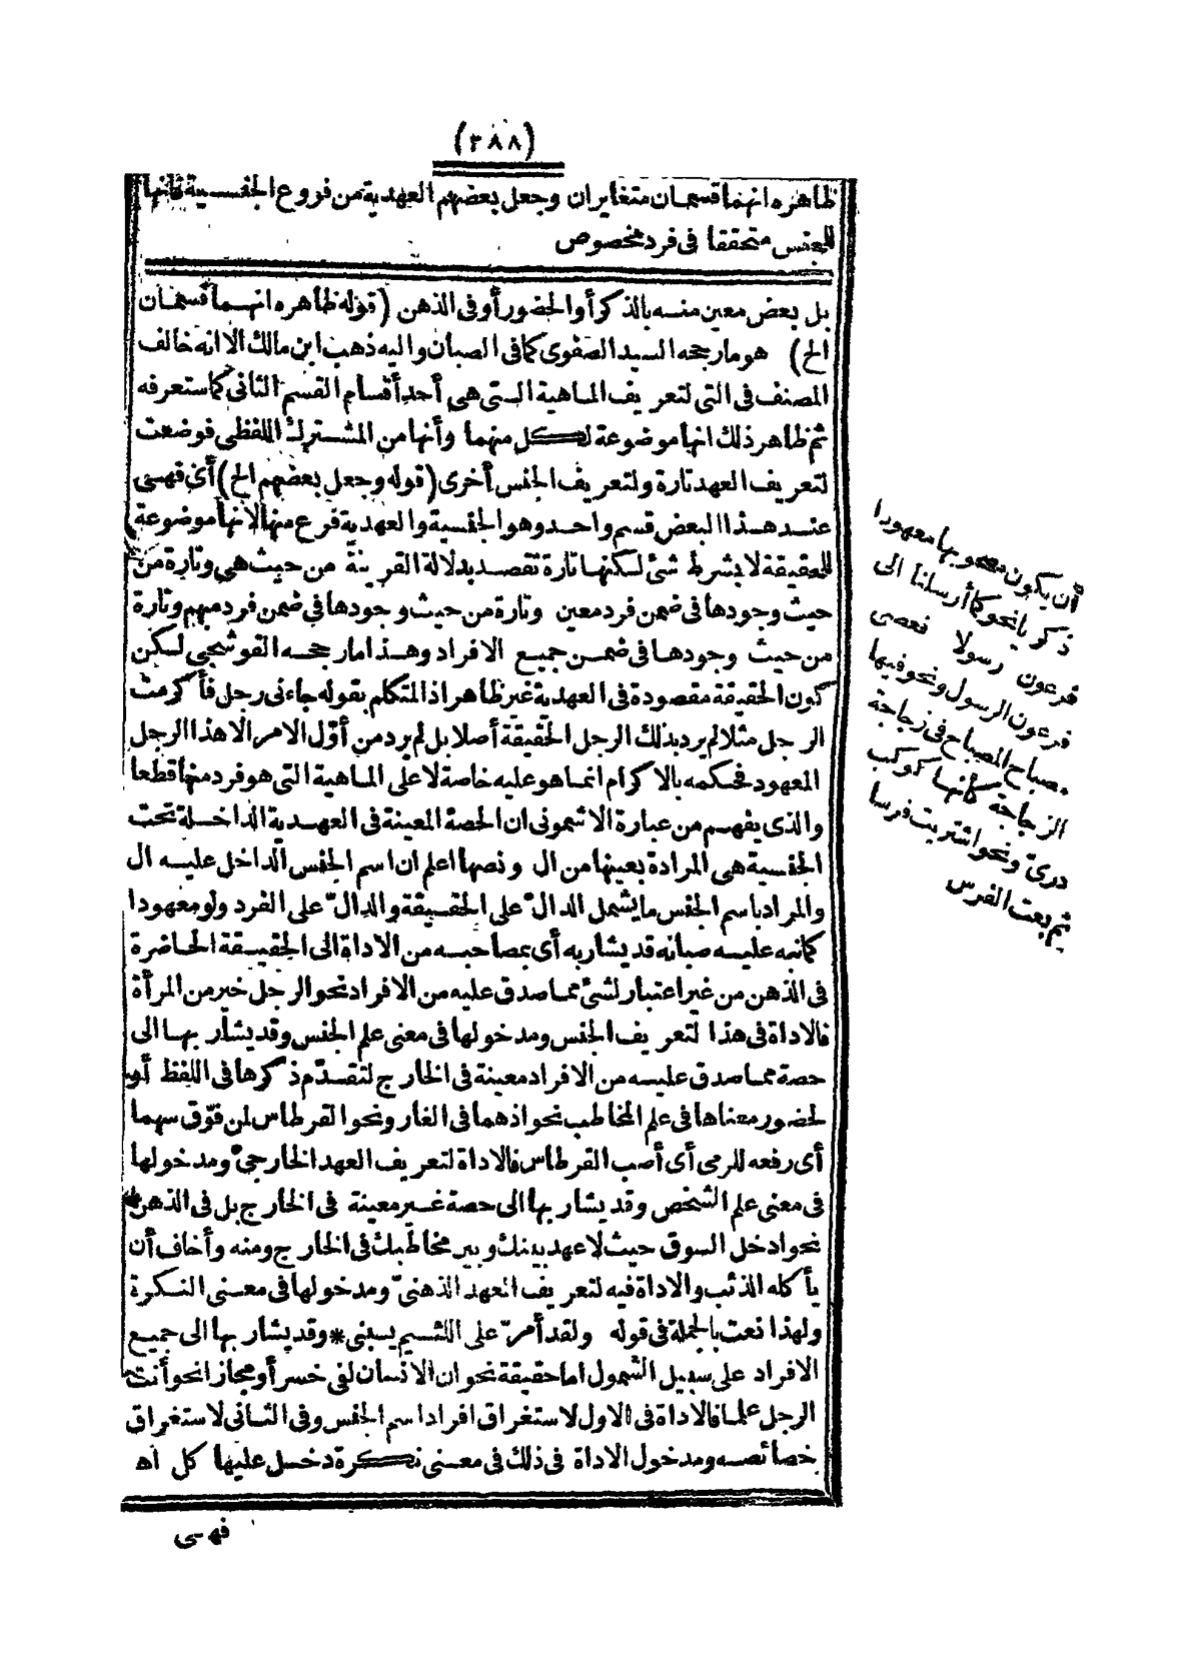 (٣٨٨)
ظاهره انهما قسمان متغايران وجعل بعضهم العهدية من فروع الجنسية فانها
للجنس متحققا فى فرد مخصوص
بل بعض معين منه بالذكر أو الحضور أو فى الذهن (قوله ظاهره انهما قسمان
الخ) هو مارجحه السيد الصفوى كما فى الصبان واليه ذهب ابن مالك الا انه خالف
المصنف فى التى لتعريف الماهية التى هى أحد أقسام القسم الثانى كما ستعرفه
ثم ظاهر ذلك انها موضوعة لكل منهما وأنها من المشترك اللفظى فوضعت
لتعريف العهد تارة ولتعريف الجنس أخرى (قوله وجعل بعضهم الخ) أى فهى
عند هذا البعض قسم واحد وهو الجنسية والعهدية فرع منها لانها موضوعة
للحقيقة لا بشرط شئ لكنها تارة تقصد بدلالة القرينة من حيث هى وتارة من
حيث وجودها فى ضمن فرد معين وتارة من حيث وجودها فى ضمن فرد مبهم وتارة
من حيث وجودها فى ضمن جميع الافراد وهذا مارجحه القوشجى لكن
كون الحقيقة مقصودة فى العهدية غير ظاهر اذ المتكلم بقوله جاءنى رجل فأكرمت
الرجل مثلا لم يرد بذلك الرجل الحقيقة أصلا بل لم يرد من أوّل الامر الا هذا الرجل
المعهود فحكمه بالاكرام انما هو عليه خاصة لا على الماهية التى هو فرد منها قطعا
والذى يفهم من عبارة الاشمونى ان الحصة المعينة فى العهدية الداخلة تحت
الجنسية هى المرادة بعينها من ال ونصها اعلم ان اسم الجنس الداخل عليه ال
والمراد باسم الجنس ما يشمل الدالّ على الحقيقة والدالّ على الفرد ولو معهودا
كما نبه عليه صبانه قد يشار به أى بمصاحبه من الاداة الى الحقيقة الحاضرة
فى الذهن من غير اعتبار لشئ مما صدق عليه من الافراد نحو الرجل خير من المرأة
فالاداة فى هذا لتعريف الجنس ومدخولها فى معنى علم الجنس وقد يشار بها الى
حصة مما صدق عليه من الافراد معينة فى الخارج لتقدّم ذكرها فى اللفظ أو
لحضور معناها فى علم المخاطب نحو اذ هما فى الغار ونحو القرطاس لمن فوّق سهما
أى رفعه للرمى أى أصب القرطاس فالاداة لتعريف العهد الخارجىّ ومدخولها
فى معنى علم الشخص وقد يشار بها الى حصة غير معينة فى الخارج بل فى الذهن
نحو ادخل السوق حيث لا عهد بينك وبين مخاطبك فى الخارج ومنه وأخاف أن
يأكله الذئب والاداة فيه لتعريف العهد الذهنىّ ومدخولها فى معنى النكرة
ولهذا نعت بالجملة فى قوله ولقد أمرّ على اللئيم يسبنى * وقد يشار بها الى جميع
الافراد على سبيل الشمول اما حقيقة نحو ان الانسان لفى خسر أو مجازا نحو أنت
الرجل علما فالاداة فى الاول لاستغراق افراد اسم الجنس وفى الثانى لاستغراق
خصائصه ومدخول الاداة فى ذلك فى معنى نكرة دخل عليها كل اه
فهى
أن يكون مصحوبها معهودا
ذكريا نحو كما أرسلنا الى
فرعون رسولا فعصى
فرعون الرسول ونحو فيها
مصباح المصباح فى زجاجة
الزجاجة كأنها كوكب
درىّ ونحو اشتريت فرسا
ثم بعت الفرس